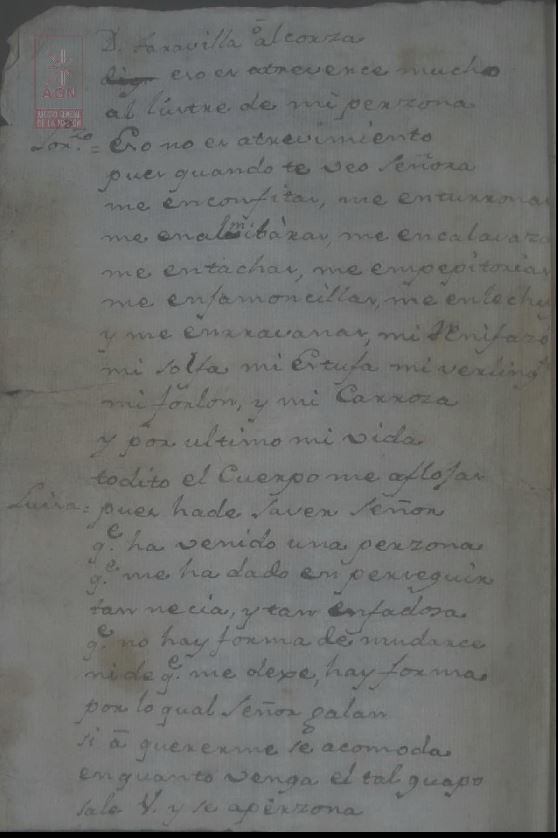 AGN
ARCHIVO GENERAL
DE LA NACIÓN
D. Taravilla ō alcorza
eso es atreverce mucho
al lustre de mi perzona
Lor.zo = Eso no es atrevimiento
pues quando te veo Señora
me enconfitas, me enturronas
me enalmibàras, me encalavaza
me entachas, me empepitorias
me enjamoncillas, me enleche
y me enrravanas, mi
mi solfa mi Estufa mi
mi forlon, y mi Carroza
y por ultimo mi vida
todito el Cuerpo me aflojas
Luisa = pues hade saver Señor
q.e ha venido una perzona
q.e me ha dado en perseguir
tan necia, y tan enfadosa
q.e no hay forma de mudarce
ni de q.e me dexe, hay forma
por lo qual Señor galan
si ā quererme se acomoda
enquanto venga el tal guapo
sale V. y se aperzona